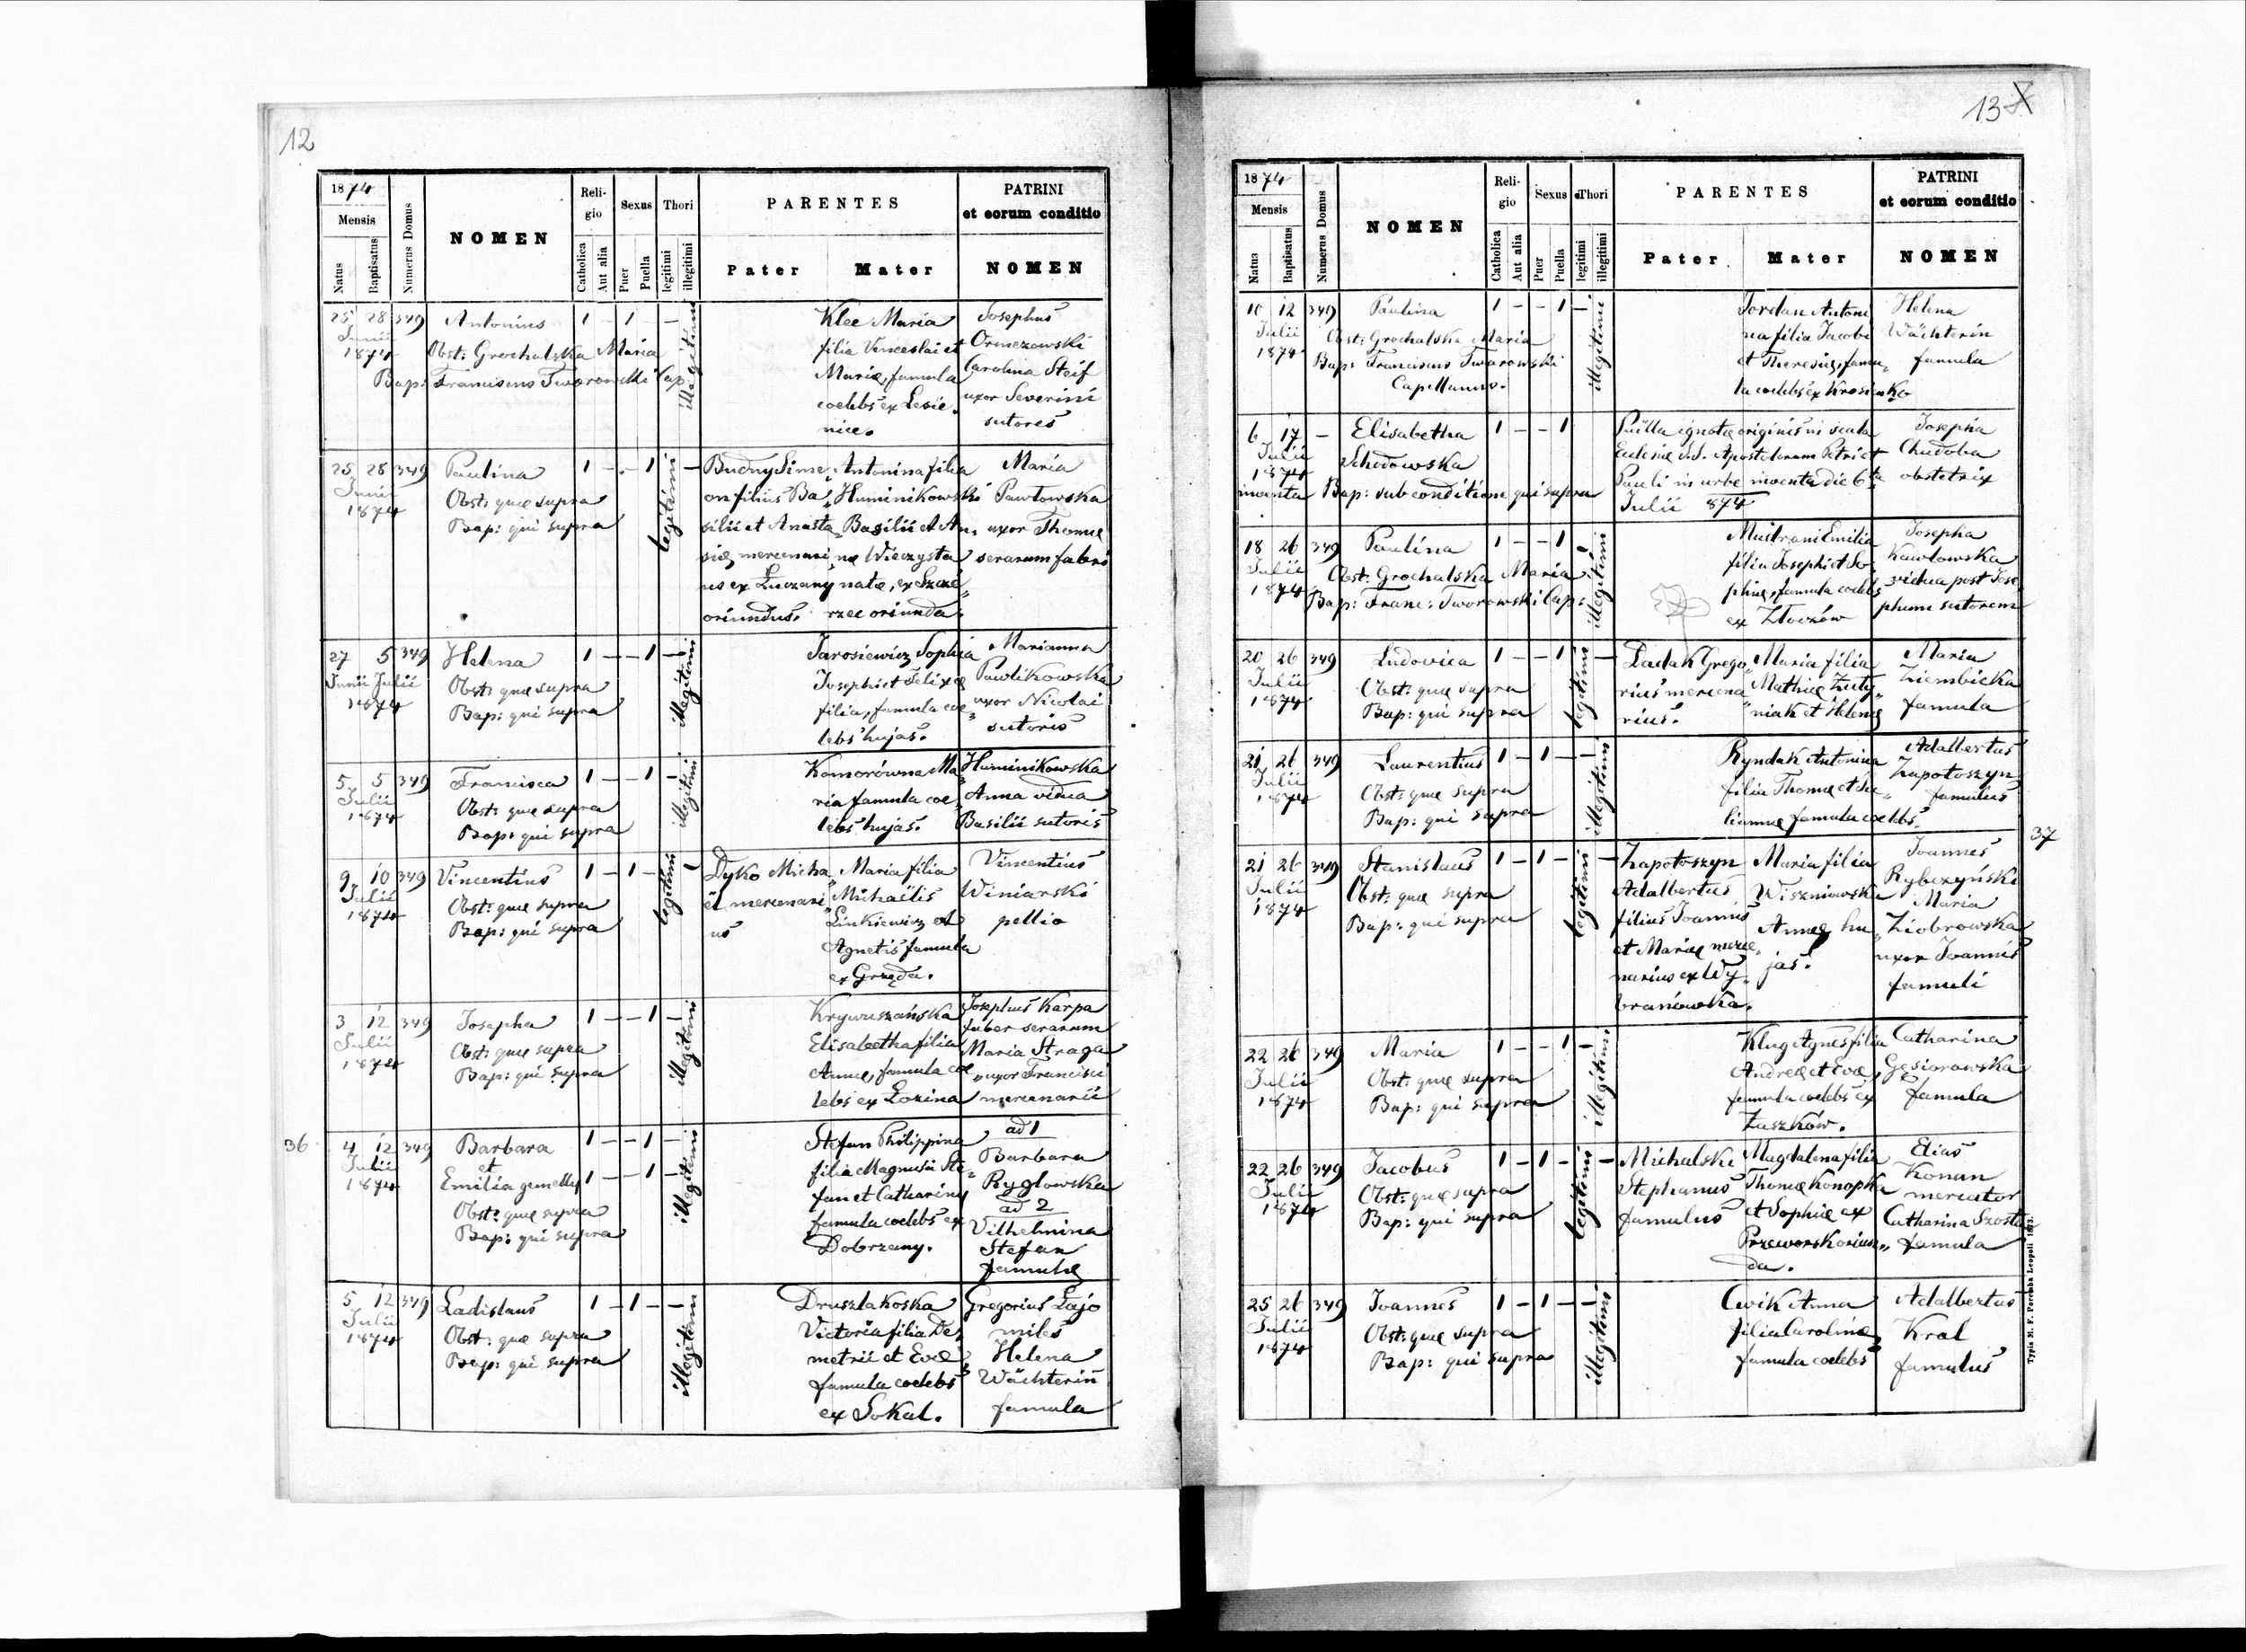 12
1874
Mensis
Natus
Baptisatus
Numerus Domus
NOMEN
Religio
Catholica
Aut alia
Sexus
Puer
Puella
Thori
legitimi
illegitimi
PARENTES
Pater
Mater
PATRINI
et eorum conditio
NOMEN
25 28 349 Antonius 1 - 1 - -
Junii
1874
Obst: Grochalska Maria
Bap: Franciscus Tworowski Cap:
illegitimi
Klee Maria
filia Venceslai et
Mariæ, famula
coelebs ex Lesie-
nice.
Josephus
Ormezowski
Carolina Steif
uxor Severini
sutoris
25 28 349 Paulina 1 - - 1 -
Junii
1874
Obst: quæ supra
Bap: qui supra
legitimi
Budny Sime-
on filius Ba-
silii et Anasta-
siæ, mercenari-
us ex Łuczany
oriundus.
Antonina filia
Huminikowski
Basilii et An-
næ Wieczysta
natæ, ex Szcze-
rzec oriunda.
Maria
Pawłowska
uxor Thomæ
serarum fabri
27 5 349 Helena 1 - - 1 -
Junii Julii
1874
Obst: quæ supra
Bap: qui supra
illegitimi
Jarosiewicz Sophia
Josephi et Felixæ
filia, famula coe-
lebs hujas.
Marianna
Pawlikowska
uxor Nicolai
sutoris
5 5 349 Francisca 1 - - 1 -
Julii
1874
Obst: quæ supra
Bap: qui supra
illegitimi
Komorówna Ma-
ria famula coe-
lebs hujas.
Huminikowska
Anna vidua
Basilii sutoris
9 10 349 Vincentius 1 - 1 - 1
Julii
1874
Obst: quæ supra
Bap: qui supra
legitimi
Dyko Micha-
ël mercenari-
us
Maria filia
Michaëlis
Linkiewicz et
Agnetis famula
ex Grzęda.
Vincentius
Winiarski
pellio
3 12 349 Josepha 1 - - 1 -
Julii
1874
Obst: quæ supra
Bap: qui supra
illegitimi
Krywuszańska
Elisabetha filia
Annæ, famula coe-
lebs ex Łozina
Josephus Karpa
faber serarum
Maria Straga
uxor Francisci
mercenarii
36
4 12 349 Barbara 1 - - 1 -
Julii
1874
et
Emilia gemellæ 1 - - 1 -
Obst: quæ supra
Bap: qui supra
illegitimi
Stefan Philippina
filia Magnusii Ste-
fan et Catharinæ
famula coelebs ex
Dobrzany.
ad 1
Barbara
Rygłowska
ad 2
Vilhelmina
Stefan
famulæ
5 12 349 Ladislaus 1 - 1 - -
Julii
1874
Obst: quæ supra
Bap: qui supra
illegitimi
Druszlakoska
Victoria filia De-
metrii et Evæ,
famula coelebs
ex Sokal.
Gregorius Łajo
miles
Helena
Wächterin
famula
13
1874
Mensis
Natus
Baptisatus
Numerus Domus
NOMEN
Religio
Catholica
Aut alia
Sexus
Puer
Puella
Thori
legitimi
illegitimi
PARENTES
Pater
Mater
PATRINI
et eorum conditio
NOMEN
10 12 349 Paulina 1 - - 1 -
Julii
1874
Obst: Grochalska Maria
Bap: Franciscus Tworowski
Capellanus.
illegitimi
Jordan Antoni-
na filia Jacobi
et Theresiæ, famu-
la coelebs ex Krosienko
Helena
Wächterin
famula
6 17 - Elisabetha 1 - - 1
Julii
1874
inventa
Schodowska
Bap: sub conditione qui supra
Puella ignotæ originis in scala
Ecclesiæ S.S. Apostolorum Petri et
Pauli in urbe inventa die 6ta
Julii 874
Josepha
Chudoba
obstetrix
18 26 349 Paulina 1 - - 1 -
Julii
1874
Obst: Grochalska Maria
Bap: Franc: Tworowski Cap:
illegitimi
Muitrani Emilia
filia Josephi et Jo-
phiæ, famula coelebs
ex Złoczów
Josepha
Kawłowska
vidua post Jose-
phum sutorem
20 26 349 Ludovica 1 - - 1 -
Julii
1874
Obst: quæ supra
Bap: qui supra
legitimi
Ladak Grego-
rius mercena-
rius.
Maria filia
Mathiæ Zuty-
niak et Helenæ
Maria
Ziembicka
famula
21 26 349 Laurentius 1 - 1 - -
Julii
1874
Obst: quæ supra
Bap: qui supra
illegitimi
Ryndak Antonina
filia Thomæ et Ju-
liannæ famula coelebs.
Adalbertus
Zapotoszyn
famulus
37
21 26 349 Stanislaus 1 - 1 - -
Julii
1874
Obst: quæ supra
Bap: qui supra
legitimi
Zapotoszyn
Adalbertus
filius Joannis
et Mariæ merce-
narius ex Wy-
branówka.
Maria filia
Wiszniowska
Annæ hu-
jas.
Joannes
Rybczyński
Maria
Ziobrowska
uxor Joannis
famuli
22 26 349 Maria 1 - - 1 -
Julii
1874
Obst: quæ supra
Bap: qui supra
illegitimi
Klug Agnes filia
Andreæ et Evæ,
famula coelebs ex
Zaszków.
Catharina
Gęsiorowska
famula
22 26 349 Jacobus 1 - 1 - -
Julii
1874
Obst: quæ supra
Bap: qui supra
legitimi
Michalski
Stephanus
famulus
Magdalena filia
Thomæ Konopka
et Sophiæ ex
Przeworsk oriun-
da.
Elias
Konan
mercator
Catharina Szosta
famula
25 26 349 Joannes 1 - 1 - -
Julii
1874
Obst: quæ supra
Bap: qui supra
illegitimi
Cwik Anna
filia Carolinæ
famula coelebs
Adalbertus
Kral
famulus
Typis M. F. Poremba Leopoli